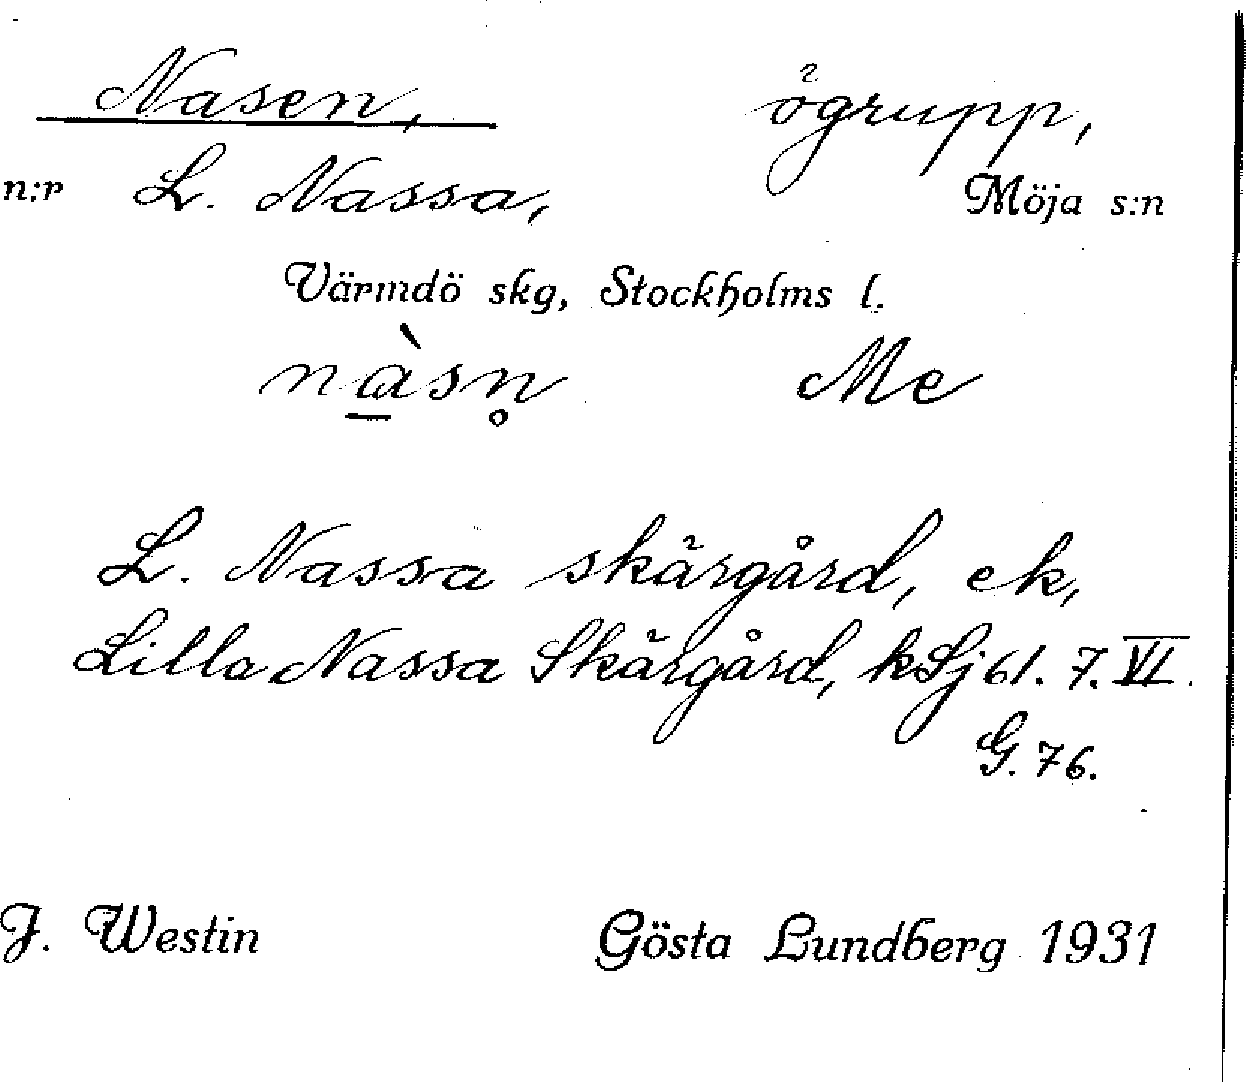 Nasen, ögrupp,
n:r L. Nassa, Möja s:n
Värmdö skg, Stockholms l.
nàsn̥ Me
L. Nassa skärgård, ek,
Lilla Nassa Skärgård, kSj 61. 7. VI.
G. 76.
J. Westin Gösta Lundberg 1931